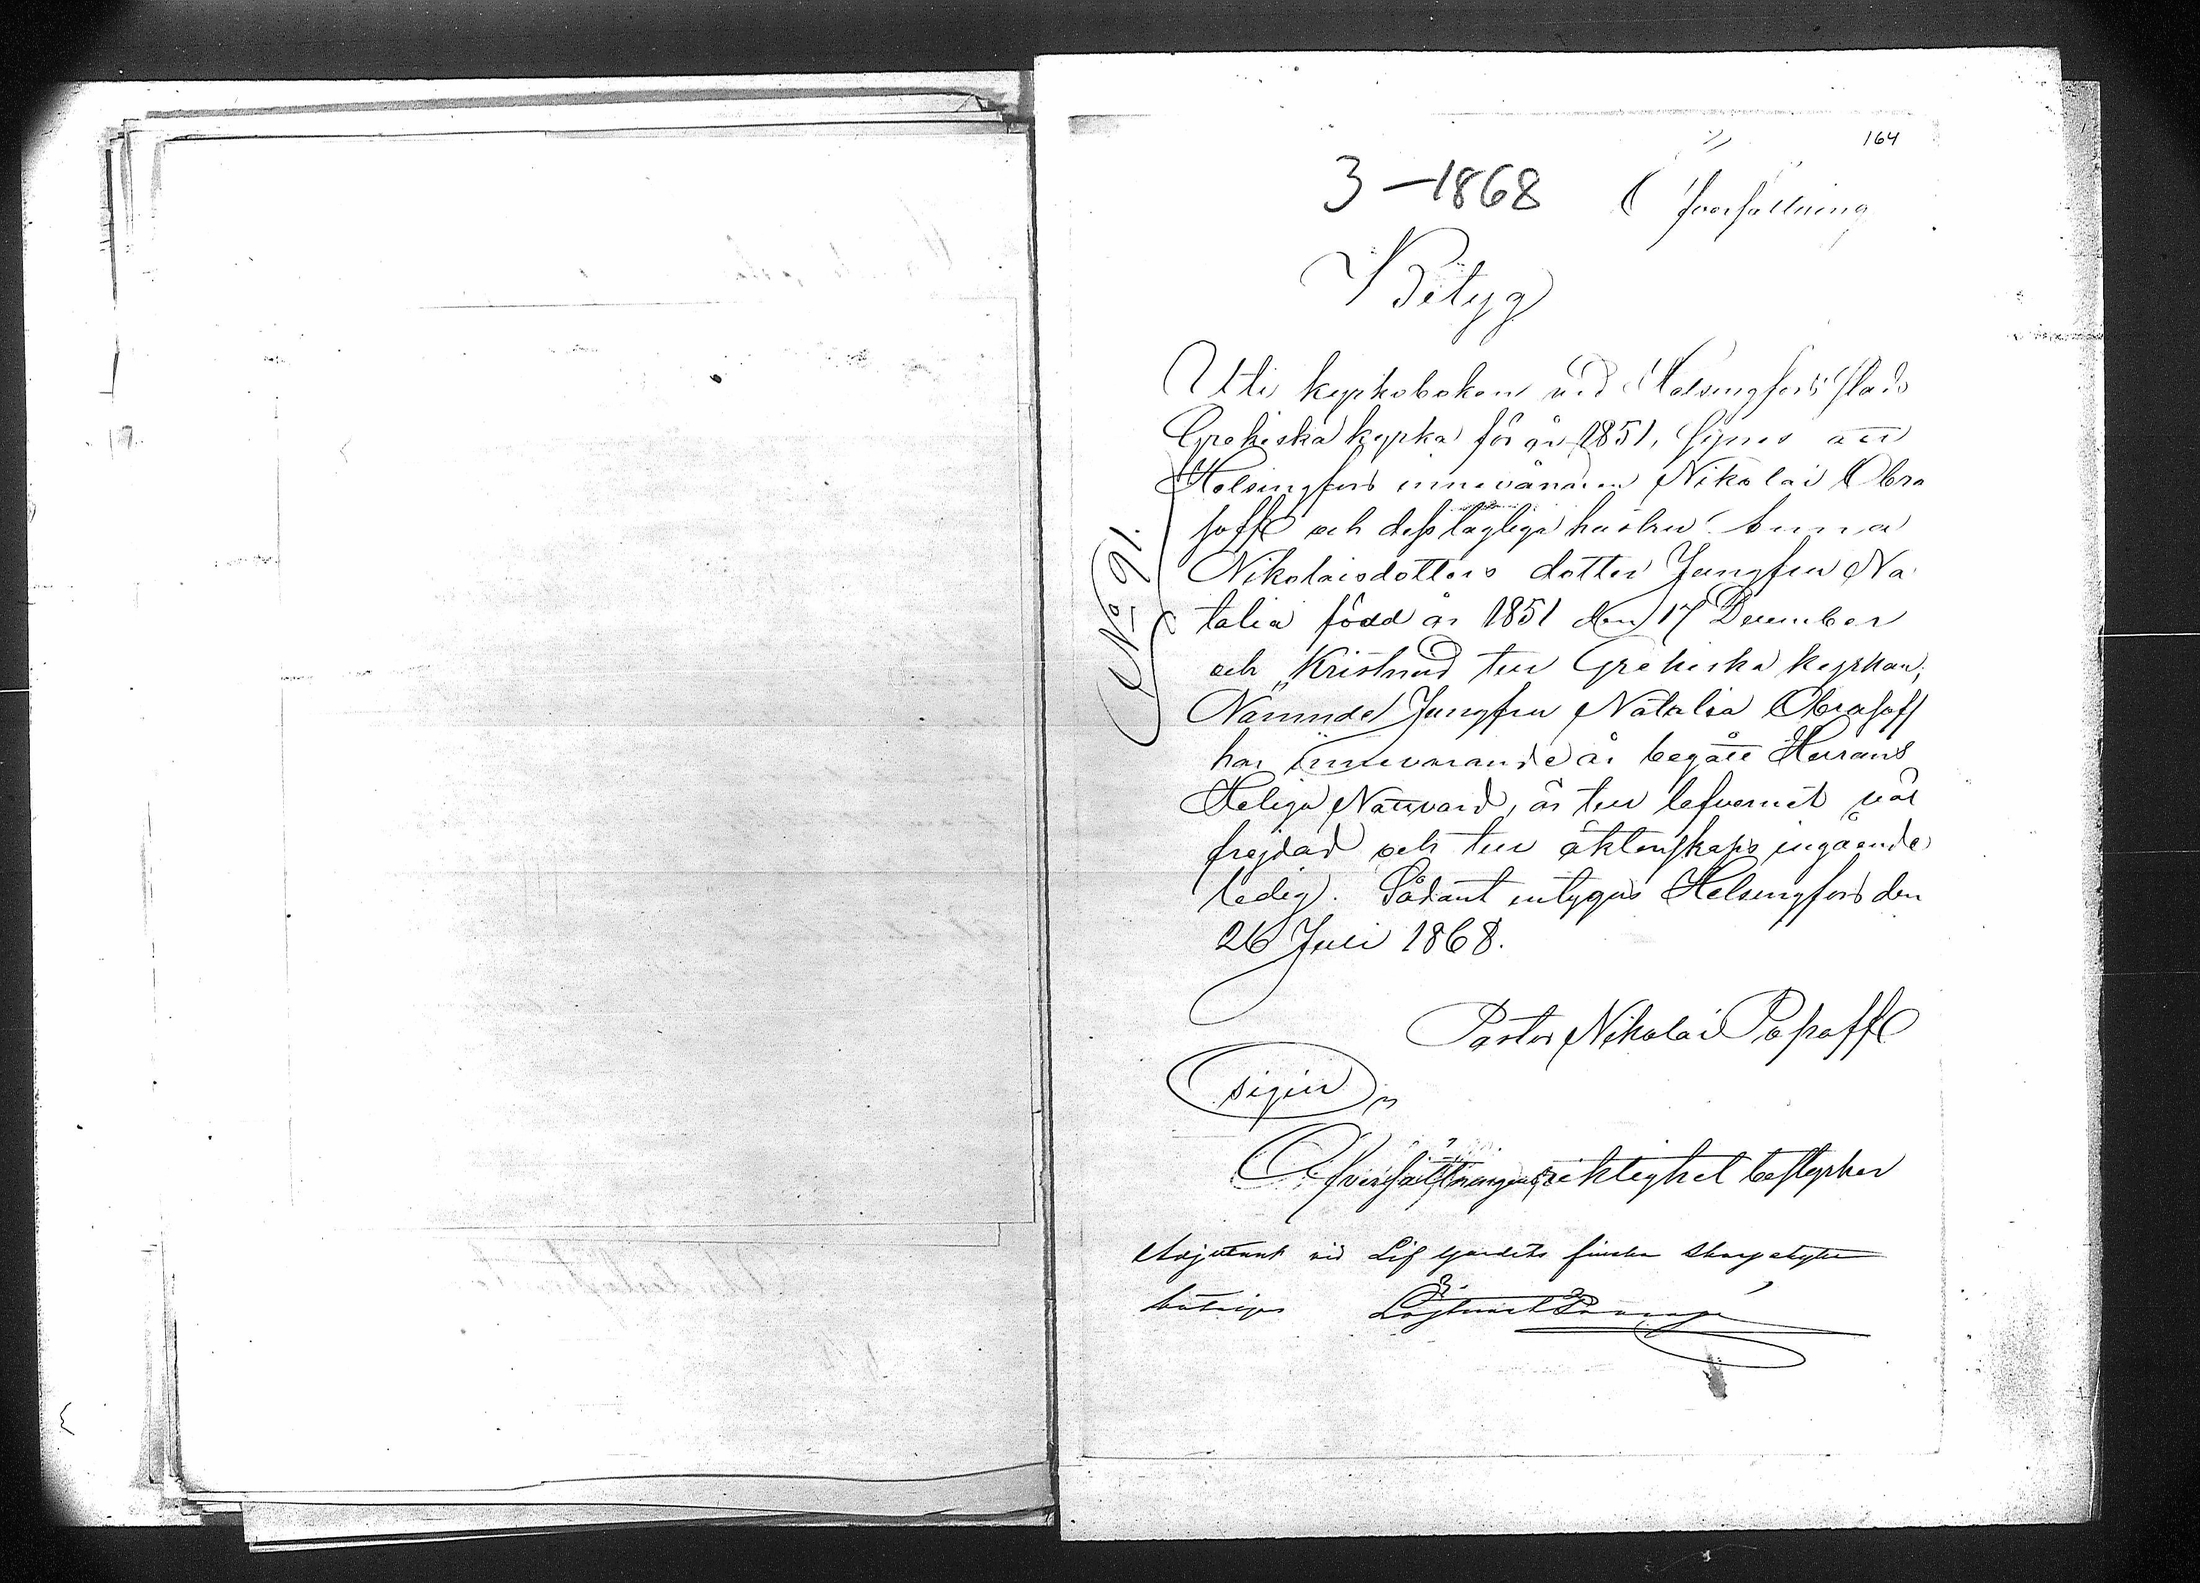 164
3 – 1868 Öfversättning
Betyg
Uti kyrkoboken vid Helsingfors stads
Grekiska kyrka för år 1851, synes att
Helsingfors innevånaren Nikolai Obra
soff och dess lagliga hustru Anna
Nikolaisdotters dotter Jungfru Na
talia född år 1851 den 17 December
och "Kristnad till Grekiska kyrkan;
Nämnde Jungfru Natalia Obrasoff
har innevarande år begått Herrans
Heliga Nattvard, är till lefvernet väl
frejdad och till äktenskaps ingående
ledig. Sådant intygas Helsingfors den
26 Juli 1868.
No 91.
Pastor Nikolai Popoff
sigill
Öfversättningens riktighet bestyrker
Adjutant vid Lif Gardets finska Skarpskytte
bataljon